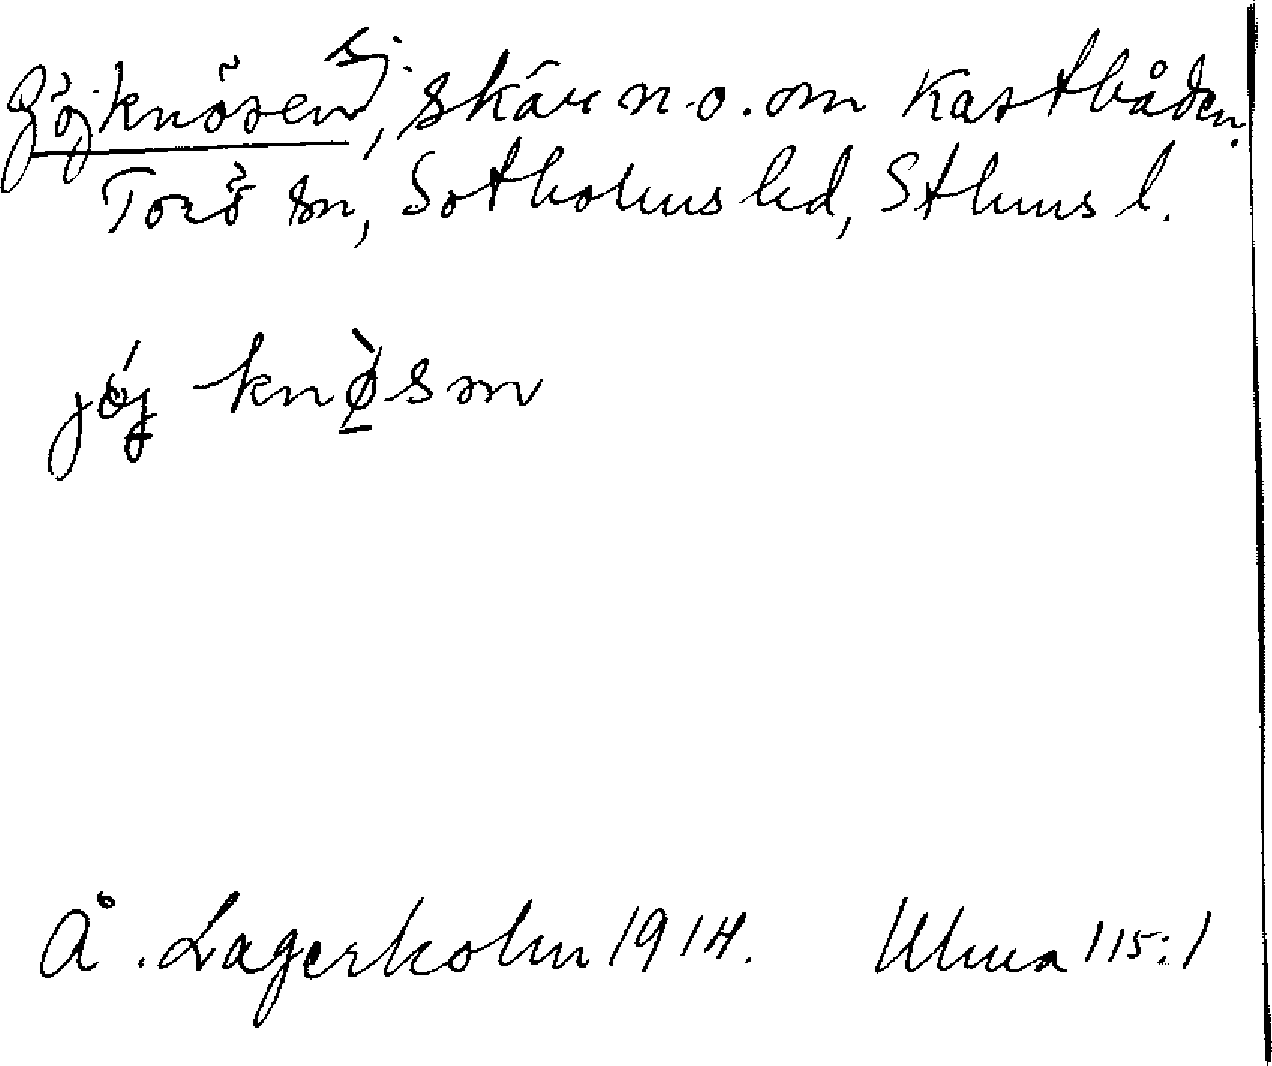 Göjknösen, skär n.o. om Kastbåden.
Torö sn, Sotholms hd, Sthms l.
jöj knø̀sən
Å. Lagerholm 1914. Ulma 115:1